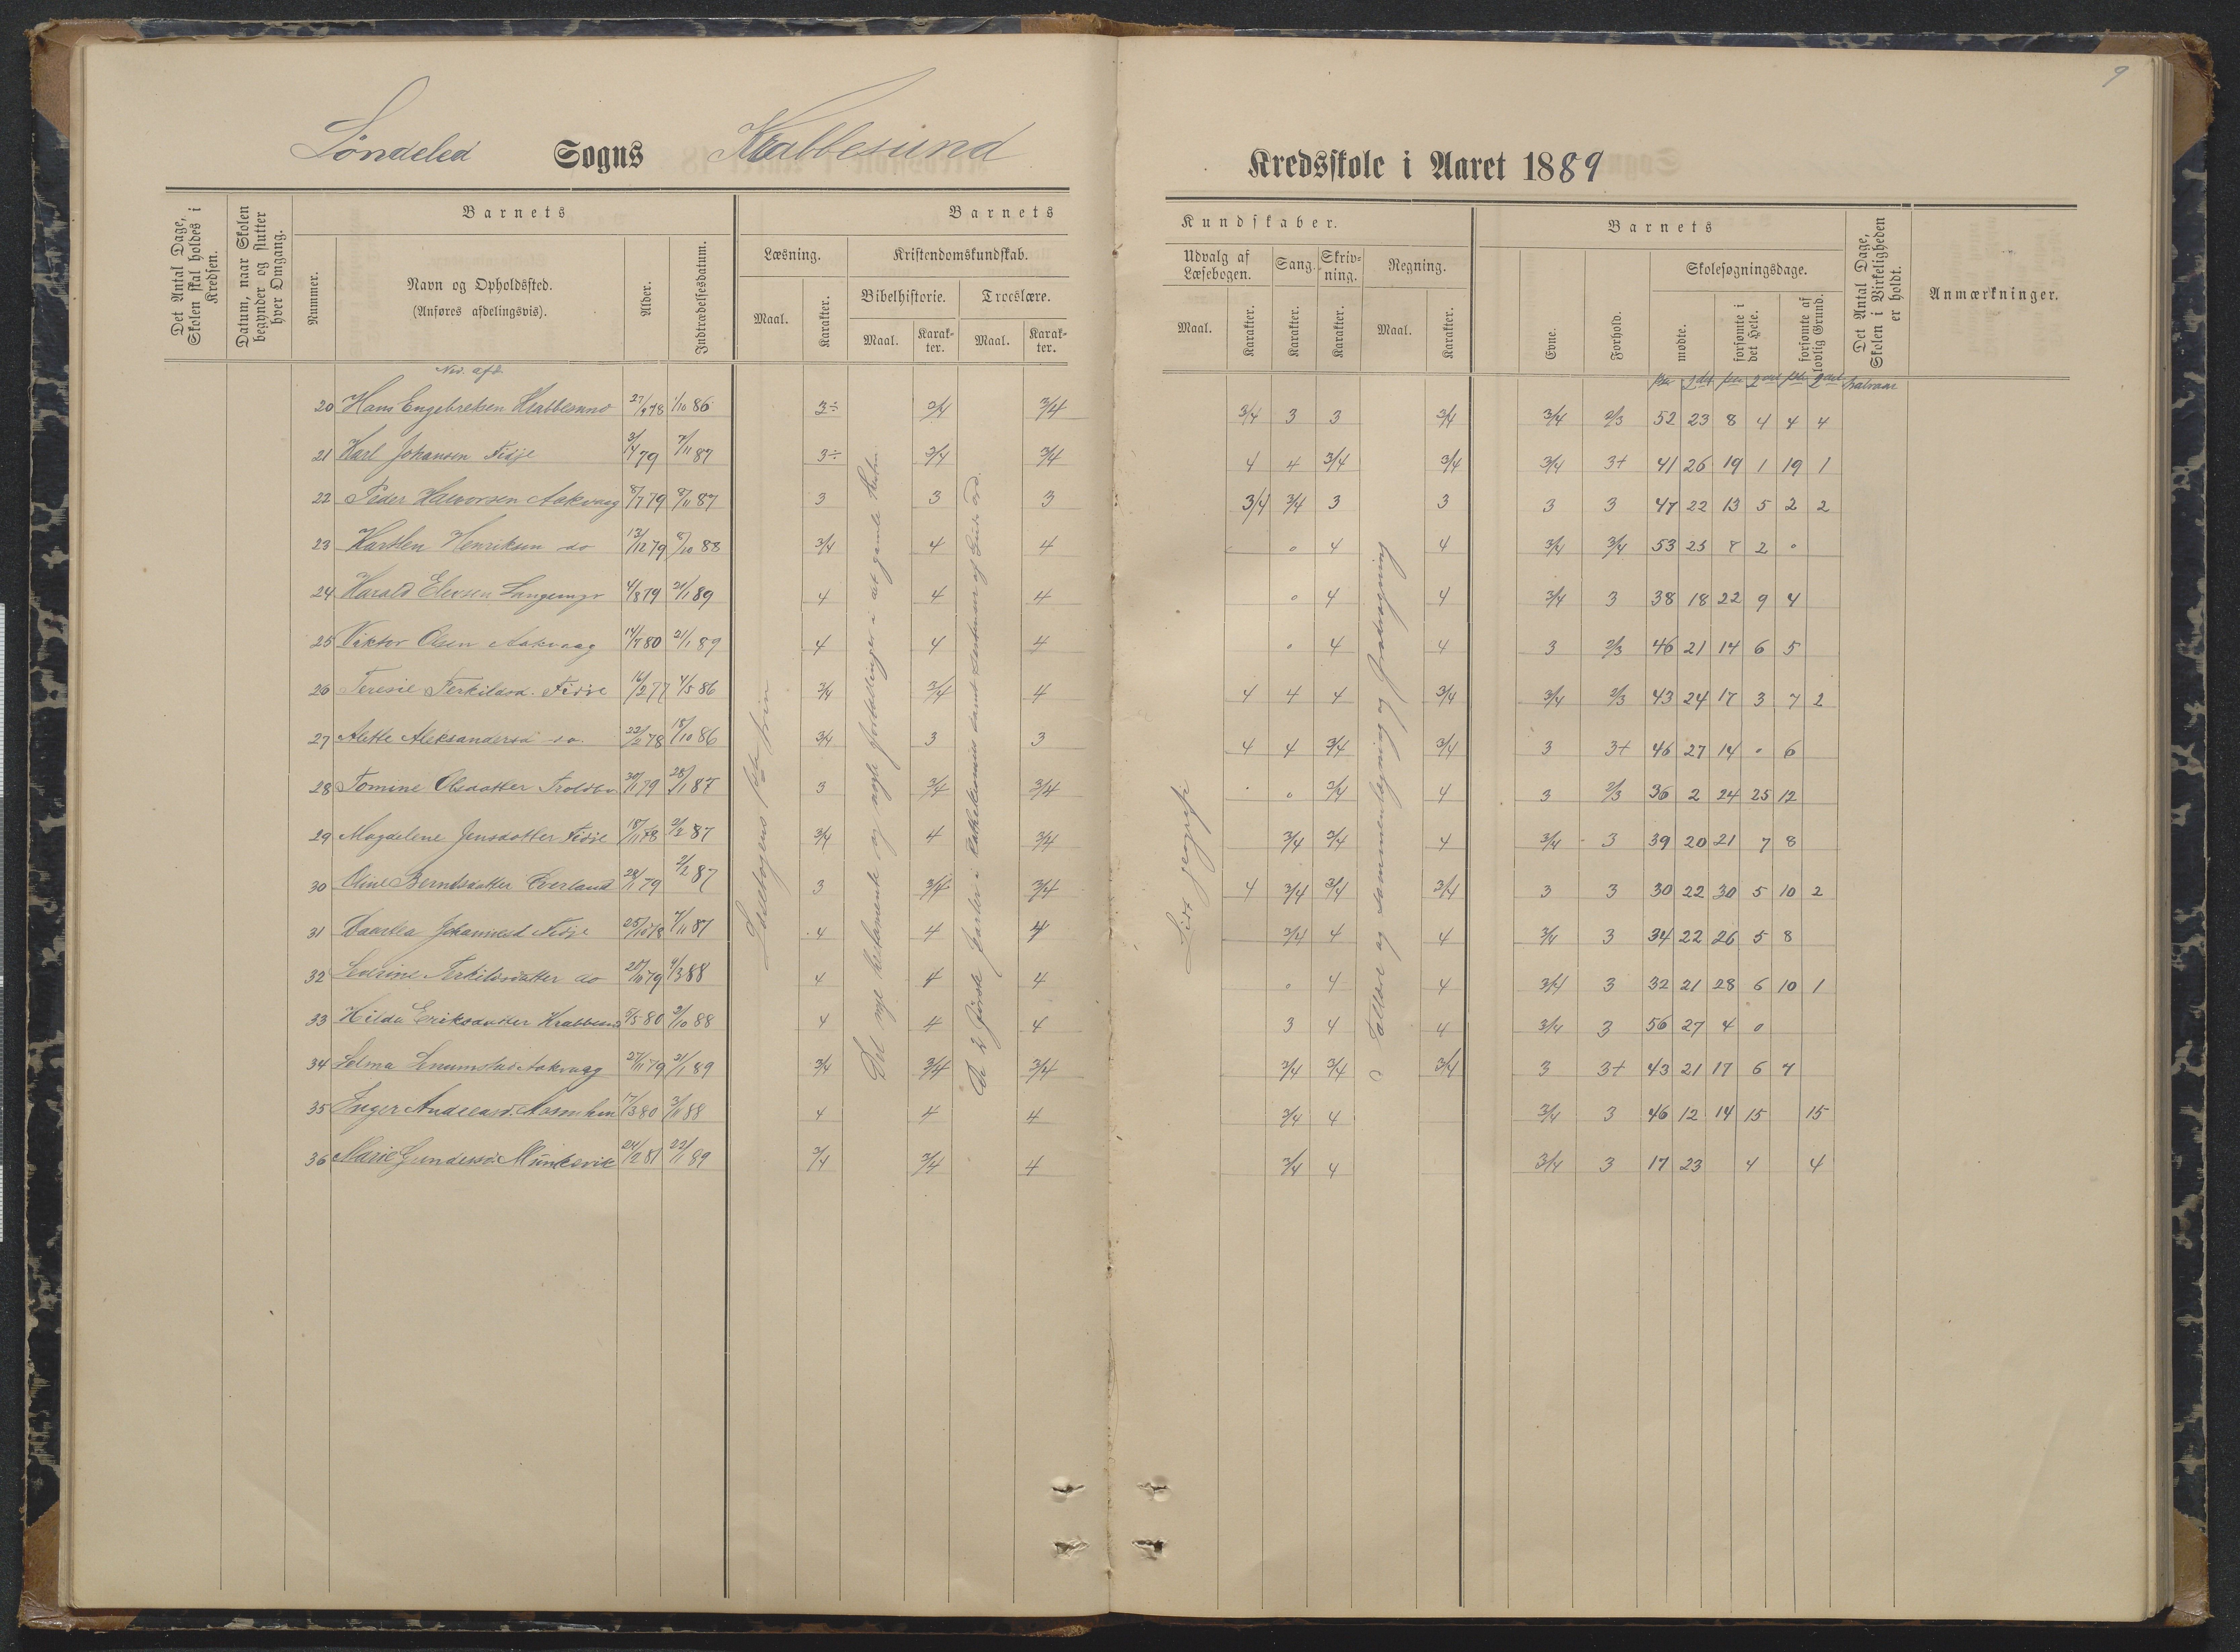 9
Søndeled Sogns Krabbesund Kredsskole i Aaret 1889
Det Antal Dage, Skolen skal holdes i Kredsen.
Datum, naar Skolen begynder og slutter hver Omgang.
Barnets
Nummer.
Navn og Opholdssted.
(Anføres afdelingsvis).
Alder.
Indtrædelsesdatum.
Barnets
Læsning.
Maal.
Karakter.
Kristendomskundskab.
Bibelhistorie.
Maal.
Karak-
ter.
Troeslære.
Maal.
Karak-
ter.
Kundskaber.
Udvalg af
Læsebogen.
Maal.
Karakter.
Sang.
Karakter.
Skriv-
ning.
Karakter.
Regning.
Maal.
Karakter.
Barnets
Evne.
Forhold.
Skolesøgningsdage.
mødte.
forsømte i det Hele.
forsømte af lovlig Grund.
Det Antal Dage, Skolen i Virkeligheden er holdt.
Anmærkninger.
Ned. afd.
halvaar
20 Hans Engebretsen Krabbesund 27/9 78 1/10 86 3÷ 3/4 3/4 3/4 3 3 3/4 3/4 2/3 52 23 8 4 4 4
21 Karl Johansen Fidje 3/4 79 7/11 87 3÷ 3/4 3/4 4 4 3/4 3/4 3/4 3+ 41 26 19 1 19 1
22 Peder Halvorsen Aakvaag 8/7 79 8/11 87 3 3 3 3/4 3/4 3 3 3 3 47 22 13 5 2 2
23 Karsten Henriksen do 13/12 79 8/10 88 3/4 4 4 0 4 4 3/4 3/4 53 25 8 2 0
24 Harald Elevsen Langemyr 4/8 79 21/1 89 4 4 4 0 4 4 3/4 3 38 18 22 9 4
25 Viktor Olsen Aakvaag 14/7 80 21/1 89 4 4 4 0 4 4 3 2/3 46 21 14 6 5
26 Teresie Terkildsd. Fidje 16/2 77 4/5 86 3/4 3/4 4 4 4 4 3/4 3/4 2/3 43 24 17 3 7 2
27 Alette Aleksandersd do. 22/2 78 18/10 86 3/4 3 3 4 4 3/4 3/4 3 3+ 46 27 14 0 6
28 Tomine Olsdatter Troldbo 30/11 79 28/1 87 3 3/4 3/4 0 3/4 4 3 2/3 36 2 24 25 12
29 Magdelene Jensdatter Fidje 18/11 78 2/2 87 3/4 4 3/4 3/4 3/4 4 3/4 3 39 20 21 7 8
30 Oline Berntsdatter Øverland 28/1 79 2/2 87 3 3/4 3/4 4 3/4 3/4 3/4 3 3 30 22 30 5 10 2
31 Daartea Johannesd Fidje 25/10 78 7/11 87 4 4 4 3/4 4 4 3/4 3 34 22 26 5 8
32 Severine Terkildsdatter do 25/10 79 9/3 88 4 4 4 0 4 4 3/4 3 32 21 28 6 10 1
33 Hilda Eriksdatter Krabbesund 5/5 80 3/10 88 4 4 4 3 4 4 3/4 3 56 27 4 0
34 Selma Aakvaag 27/11 79 21/1 89 3/4 3/4 3/4 3/4 3/4 3/4 3 3+ 43 21 17 6 7
35 Inger Andreasd. 17/3 80 3/11 88 4 4 4 3/4 4 3/4 3 46 12 14 15 15
36 Marie Gundersd. Munkevik 24/2 81 22/1 89 3/4 3/4 4 3/4 4 3/4 3 17 23 4 4
Læsebogens 1ste trin
Det nye testamente og nogle fortællinger i det gamle
De 2 første parter i katekismus samt
Lidt geografi
Tallære og sammenlægning og fradragning